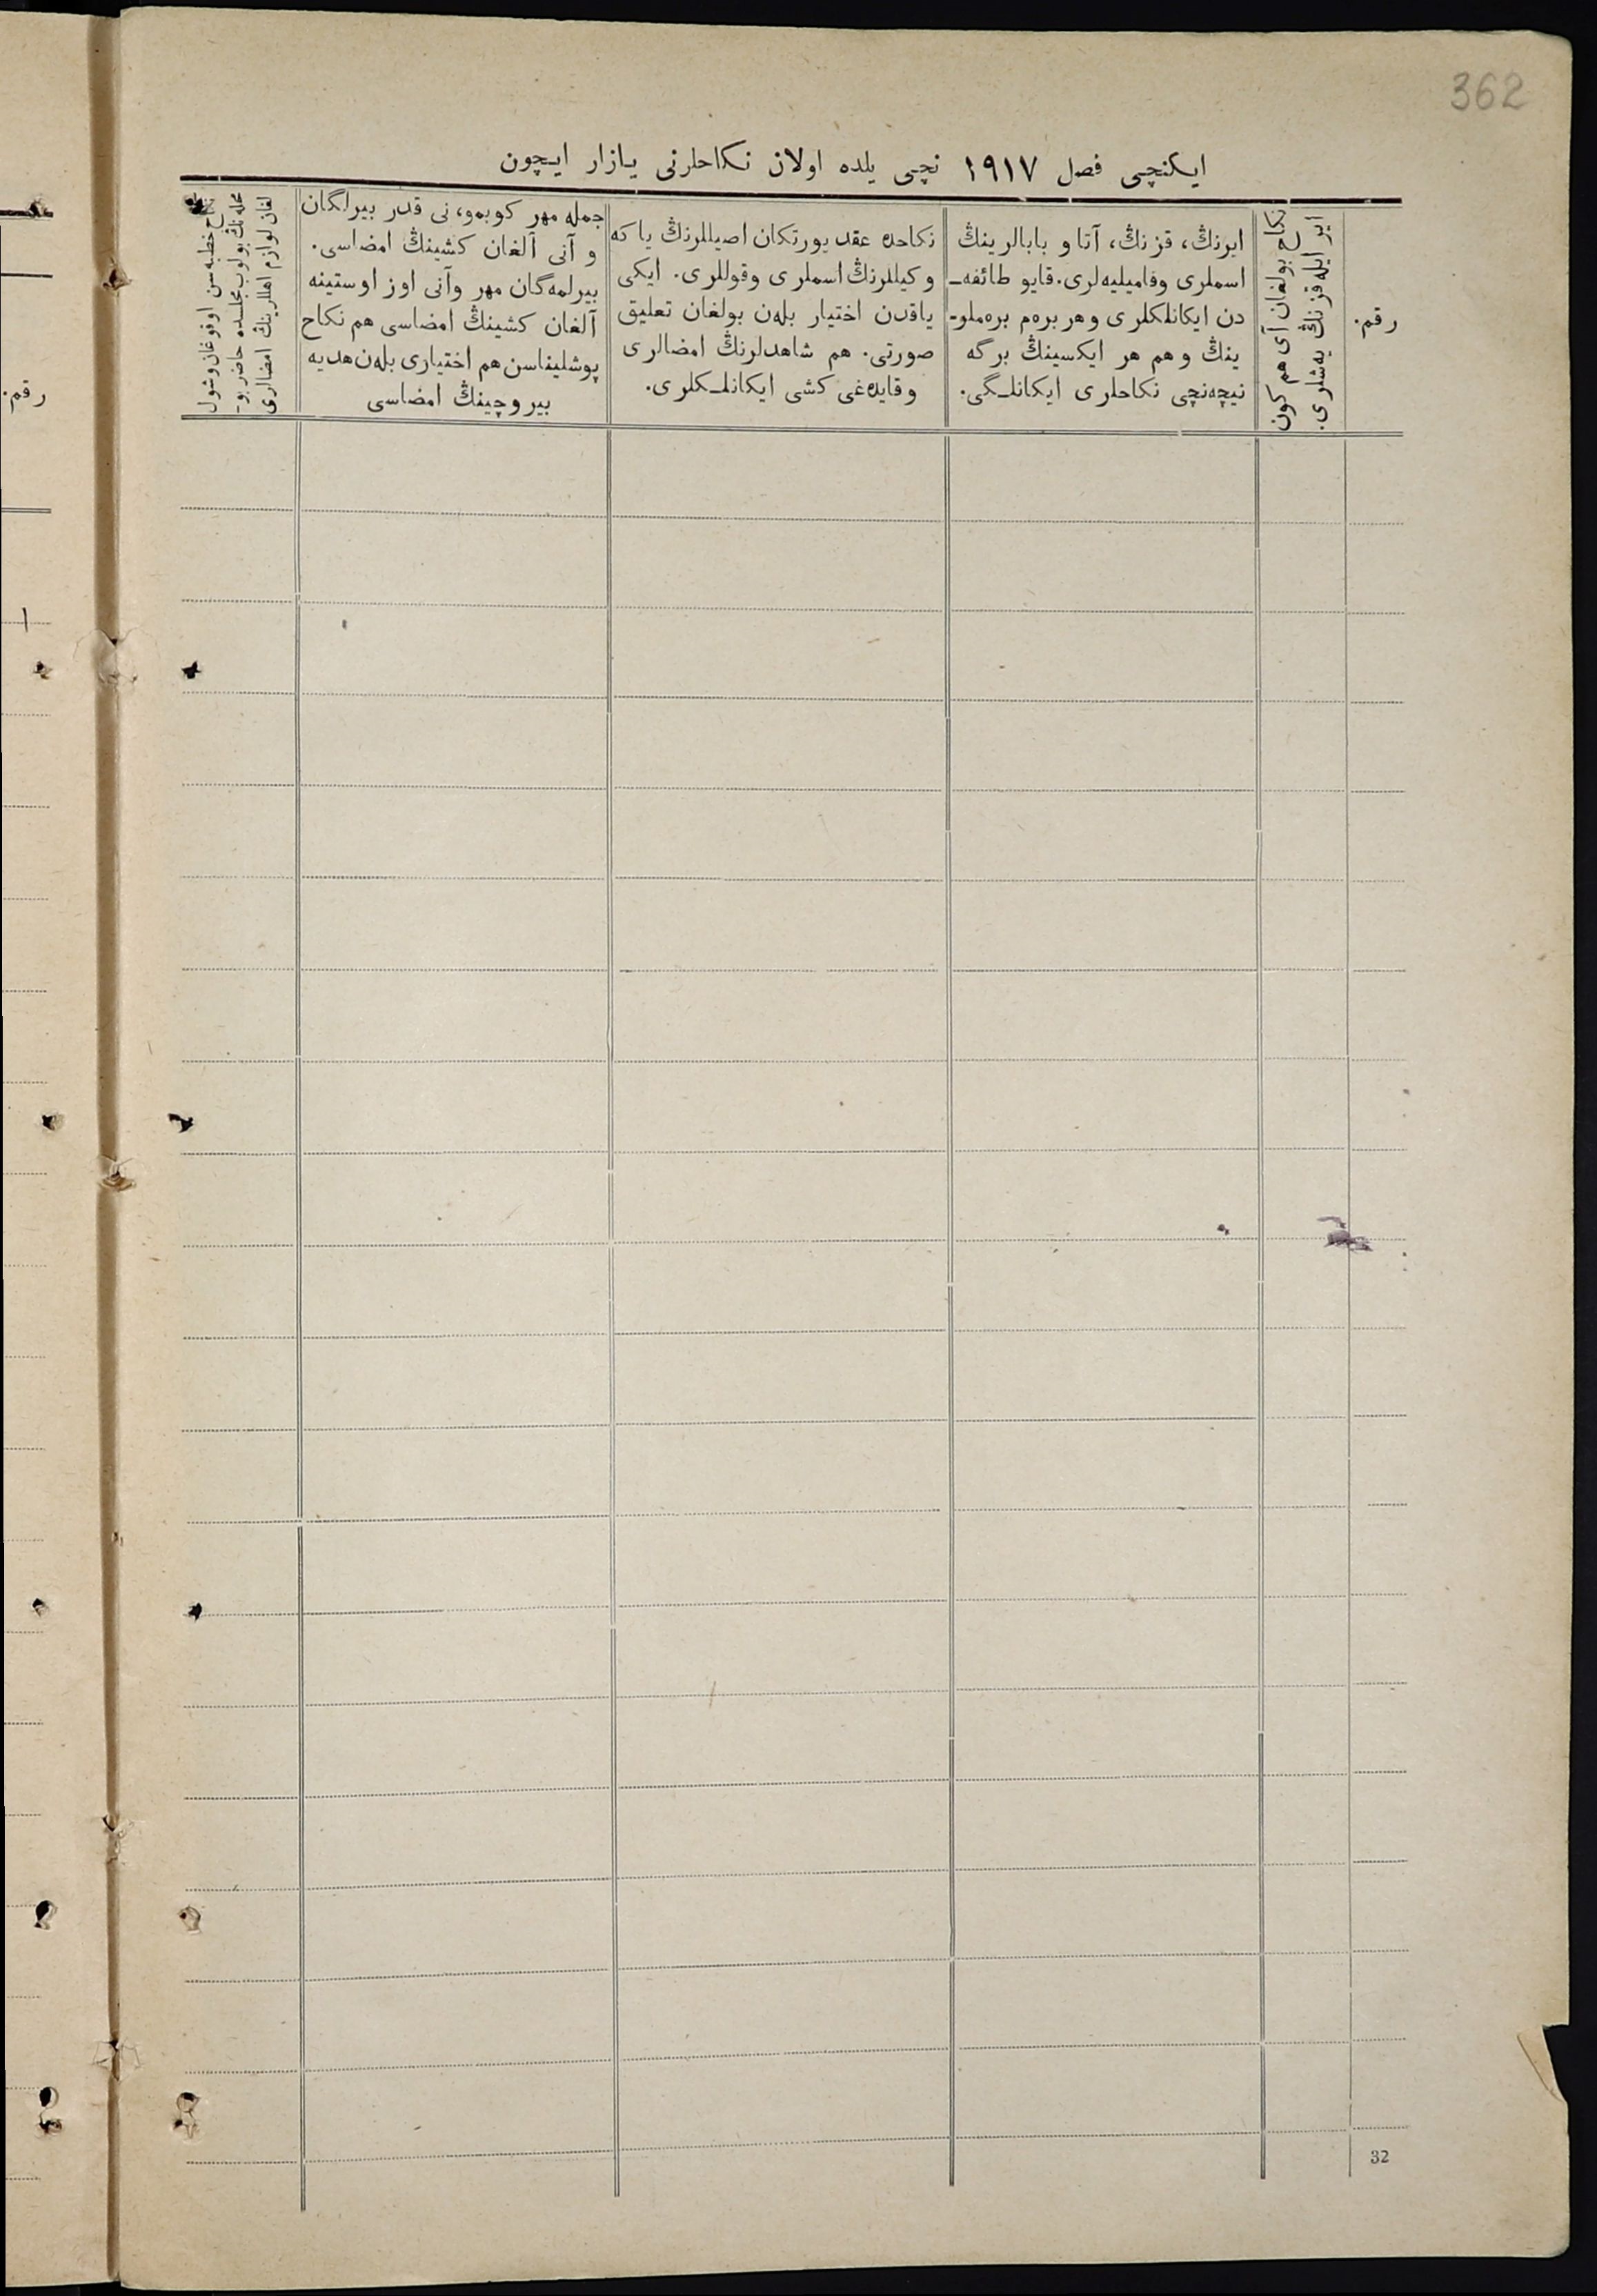 362
ایكنچی فصل ۱۹۱۷ نچی یلده اولان نكاحلرنی یازار ایچون
رقم.
نكاح بولغان آی هم كون
ایر ایله قزنڭ یه‌شلری.
ایرنڭ، قزنڭ، آتا و بابالرینڭ
اسملری وفامیلیه‌لری. قایو طائفه‌ـ
دن ایكانلكلری وهر بره‌م بره‌ملو-
ینڭ وهم هر ایكسینڭ برگه
نیچه‌نچی نكاحلری ایكانلـگی.
نكاحده عقد یورتكان اصیللرنڭ یا كه
وكیللرنڭ اسملری وقوللری. ایكی
یاقدن اختیار بله‌ن بولغان تعلیق
صورتی. هم شاهدلرنڭ امضالری
وقایده‌غی كشی ایكانلـكلری.
جمله مهر كوبمو، نی قدر بیرلگان
و آنی آلغان كشینڭ امضاسی.
بیرلمه‌گان مهر وآنی اوز اوستینه
آلغان كشینڭ امضاسی هم نكاح
پوشلیناسن هم اختیاری بله‌ن هدیه
بیروچینڭ امضاسی
نكاح خطبه‌سن اوقوغان وشول
محله‌نڭ بولوب مجلسده حاضر بو-
لغان لوازم اهللرینڭ امضالری
رقم.
۱
32